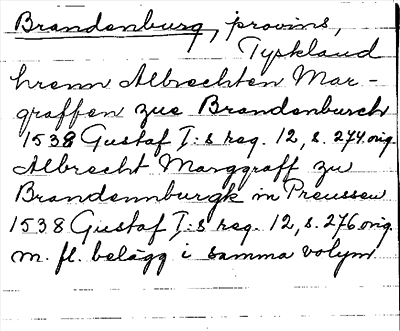 Brandenburg, provins,
Tyskland
hrenn Albrechten Mar-
graffen zue Brandenburch
1538 Gustaf I:s reg. 12, s. 274 orig.
Albrecht Marggraff zu
Brandennburgk in Preussen
1538 Gustaf I:s reg. 12, s. 276 orig.
m. fl. belägg i samma volym